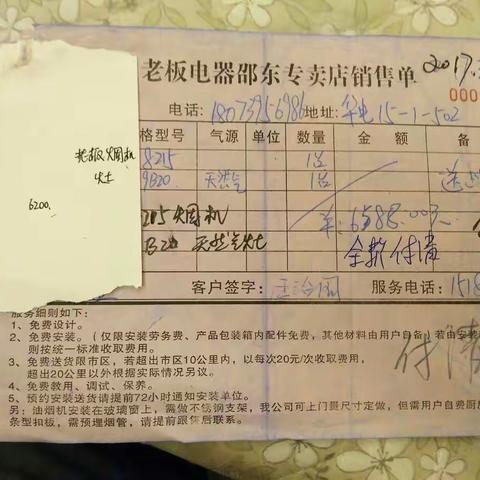 老板电器邵东专卖店销售单 2017.
000
电话: 18073956986 地址: 华电15-1-502
格型号 气源 单位 数量 金额 备
老板烟机
灶
8215 1台
9B20 天然气 1台 送
6200.
215烟机 ¥:6588.00元
B20 天然气灶 全款付清
客户签字: 服务电话: 1518
服务细则如下:
1、免费设计。
2、免费安装。(仅限安装劳务费、产品包装箱内配件免费,其他材料由用户自备)若由安装
则按统一标准收取费用。
3、免费送货限市区,若超出市区10公里内,以每次20元/次收取费用,
超出20公里以外根据实际情况另议。
4、免费教用、调试、保养。
5、预约安装送货请提前72小时通知安装单位。
另:油烟机安装在玻璃窗上,需做不锈钢支架,我公司可上门量尺寸定做,但需用户自费厨房
条型扣板,需预埋烟管,请提前跟售后联系。
付清